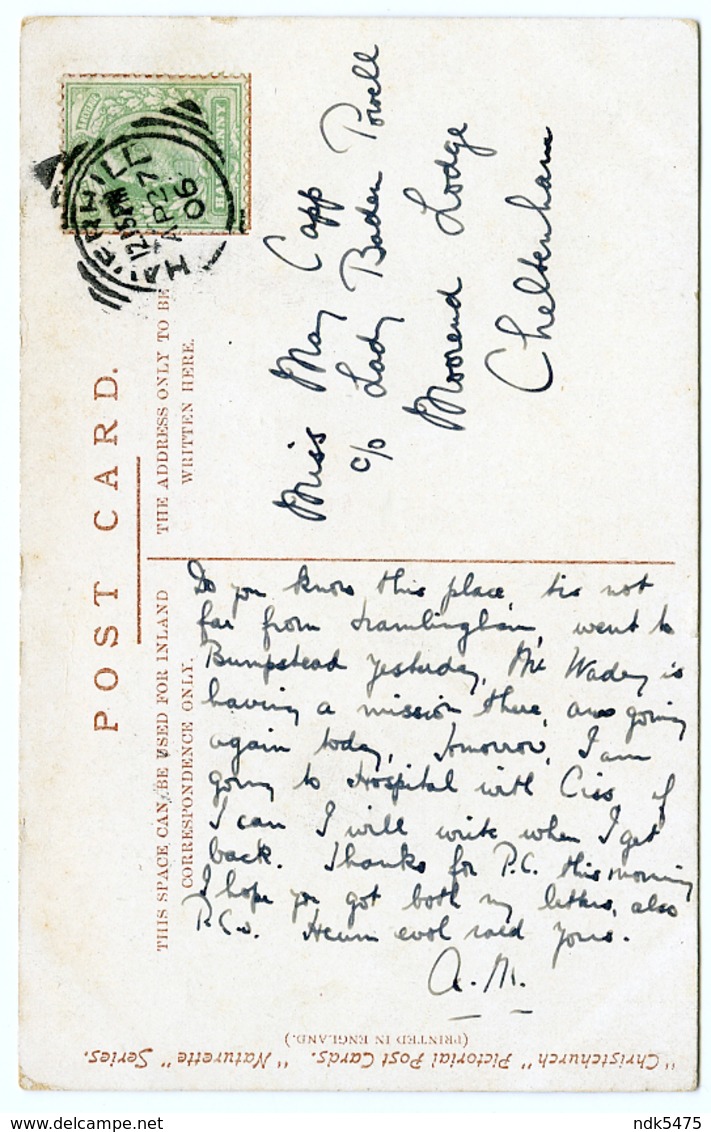 POST CARD.
THIS SPACE CAN BE USED FOR INLAND
CORRESPONDENCE ONLY.
THE ADDRESS ONLY TO BE
WRITTEN HERE.
HALFPENNY
HAVERHILL
12.15PM
AP27
06
Miss May Capp
c/o Lady Baden Powell
Moorend Lodge
Cheltenham
Do you know this place, tis not
far from Framlingham, went to
Bumpstead yesterday, the Wadey is
having a mission there, are going
again today, tomorrow, I am
going to Hospital with Ciss, if
I can I will write when I get
back. Thanks for P.C. this morning
I hope you got both my letters, also
P.C.s. yours.
A.M.
"Christchurch" Pictorial Post Cards. "Naturette" Series.
(PRINTED IN ENGLAND.)
delcampe.net
ndk5475